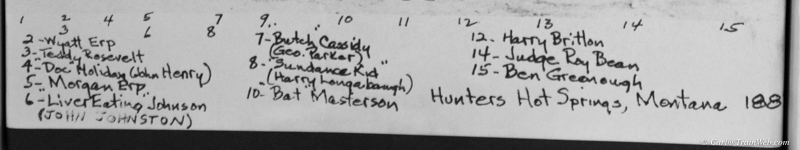 1 2 4 5 7 9. 10 11 12 13 14 15
3 6 8
2-Wyatt Erp
3-Teddy Rosevelt
4-Doc Holiday (John Henry)
5-"Morgan Erp
6-"Liver Eating" Johnson
(JOHN JOHNSTON)
7-"Butch" Cassidy
(Geo. Parker)
8-"Sundance Kid"
(Harry Longabaugh)
10-"Bat" Masterson
12-Harry Britton
14-Judge Roy Bean
15-Ben Greenough
Hunters Hot Springs, Montana 1883